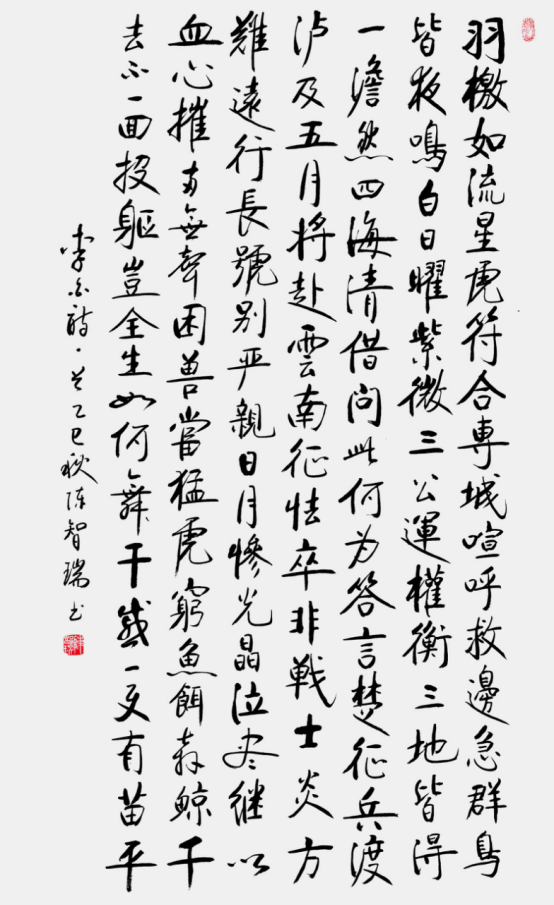 羽檄如流星虎符合専城喧呼救邊急群鳥
皆夜鳴白日曜紫微三公運權衡三地皆得
一澹然四海清借問此何为答言楚征兵渡
泸及五月将赴雲南征怯卒非戦士炎方
難遠行長號别严親日月慘光晶泣尽继以
血心摧無聲困兽當猛虎窮魚餌奔鯨千
去不一囬投軀豈全生如何舞干戚一有苗平
李白詩·乙巳秋陈智瑞书